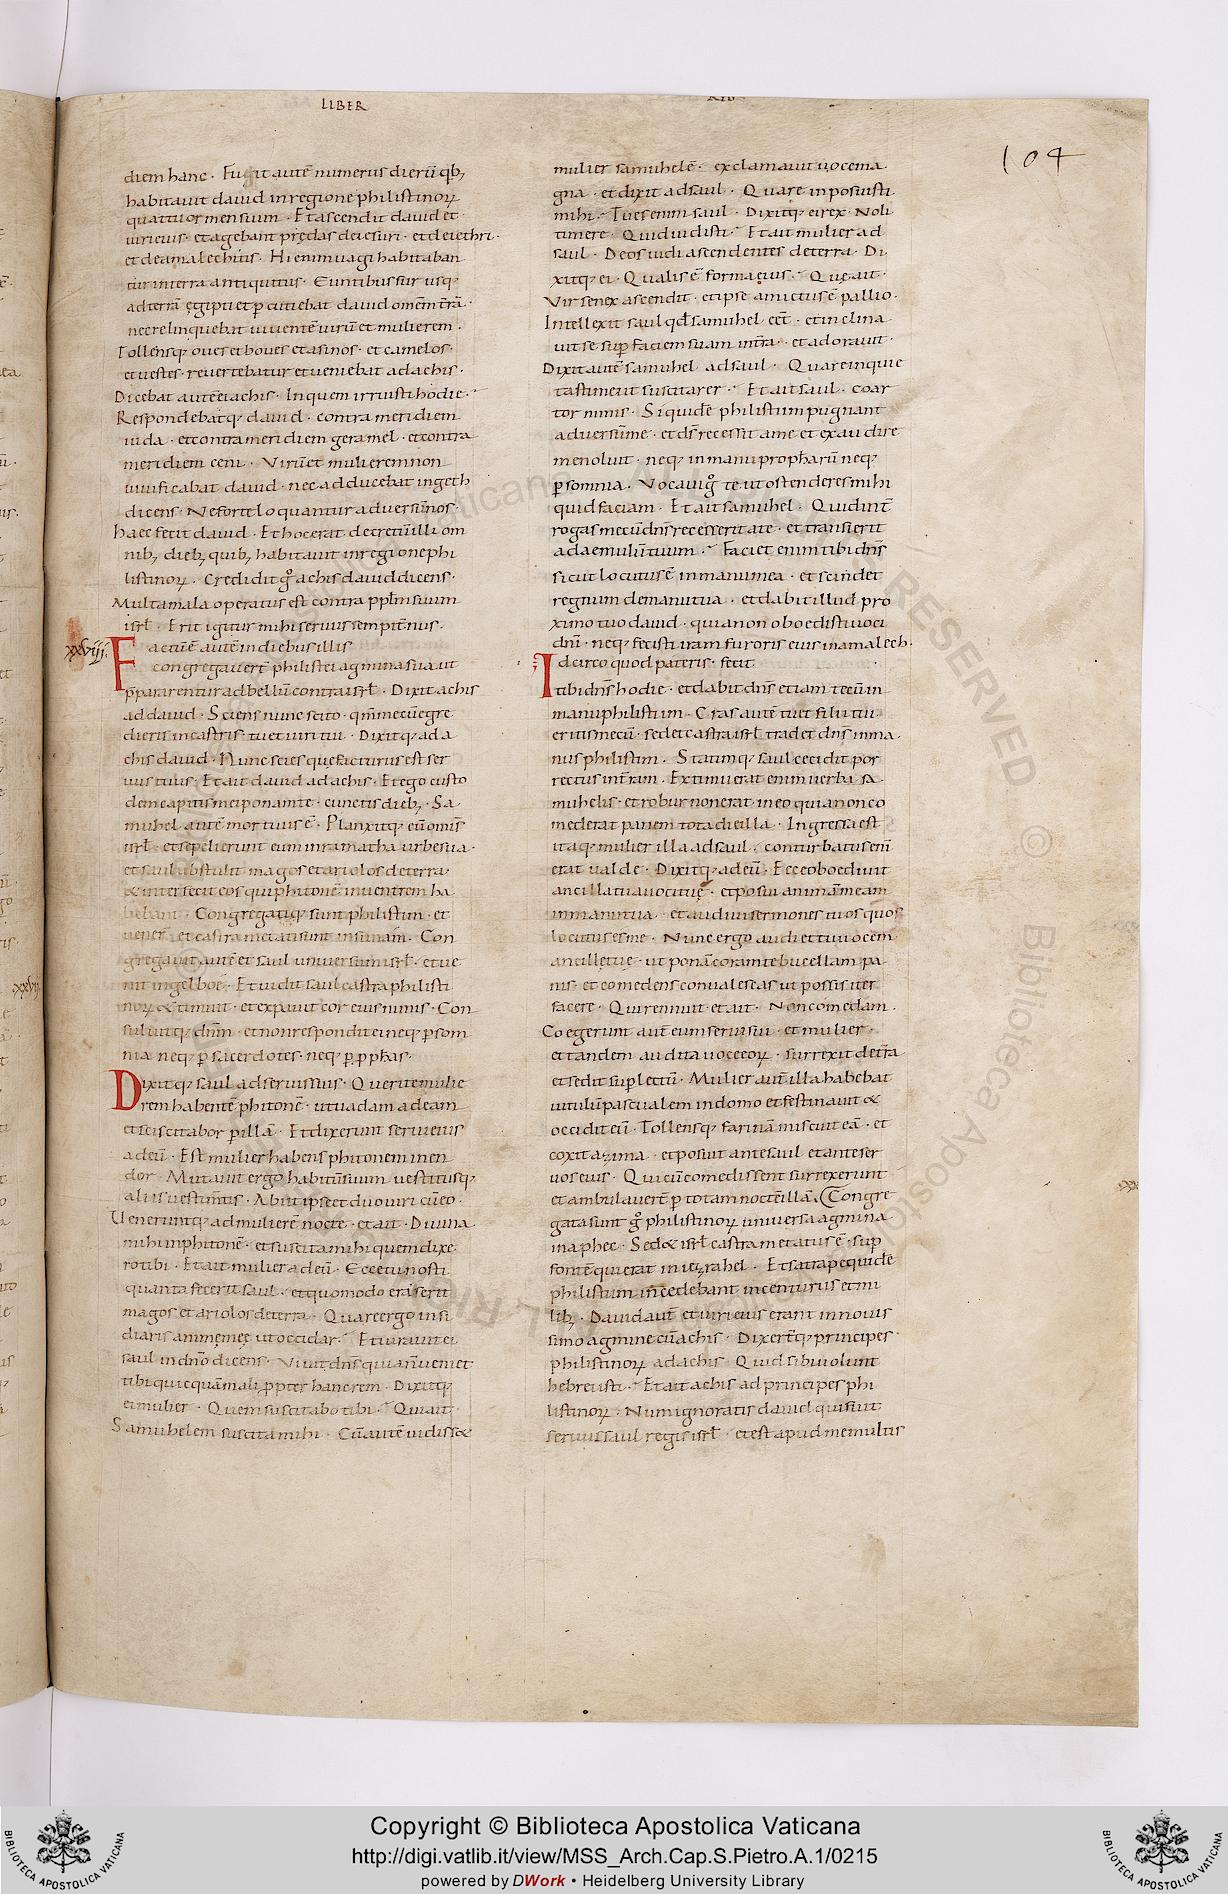 LIBER
REG
104
diem hanc · Fugit autē numerus dierū qb;
habitauit dauid in regione philistinorꝝ
quattuor mensium · Et ascendit dauid et
uiri eius · et agebant prędas de iesuri · et de iethri ·
et de amalechitis · Hi enim uagi habitaban
tur in terra antiquitus · Euntibus sur usq;
ad terrā ęgipti et pcutiebat dauid omēm t̄rā ·
nec relinquebat uiuentē uirū et mulierem ·
Tollensq; oues et boues et asinos · et camelos ·
et uestes · reuertebatur et ueniebat ad achis ·
Dicebat autē ei achis · In quem irruisti hodie ·
Respondebatq; dauid · contra meridiem
iuda · et contra meridiem geramel · et contra
meridiem ceni · Virū et mulierem non
uiuificabat dauid · nec adducebat in geth
dicens · Ne forte loquantur aduersū nos ·
haec fecit dauid · Et hoc erat decretū illi om
nib; dieb; quib; habitauit in regione phi
listinorꝝ · Credidit g̊ achis dauid dicens ·
Multa mala operatus est contra pplm̄ suum
isrł · Erit igitur mihi seruus sempit̄nus ·
xxviij.
Factū ē autē in diebus illis
congregauer̄t philistei agmina sua ut
ppararentur ad bellū contra isrł · Dixit achis
ad dauid · Sciens nunc scito · qm̄ mecū egre
dieris in castris tu et uiri tui · Dixitq; ad a
chis dauid · Nunc scies quę facturus est ser
uus tuus · Et ait dauid ad achis · Et ego custo
dem capitis mei ponam te · cunctis dieb; · Sa
muhel autē mortuus ē · Planxitq; eū omīs
isrł · et sepelierunt eum in ramatha urbe sua ·
et saul abstulit magos et ariolos de terra ·
& interfecit eos qui phitonē in uentrem ha
bebant · Congregatiq; sunt philistim · et
uener̄ et castra metati sunt in sunam · Con
gregauit autē et saul uniuersum isrł · et ue
nit in gelboe · Et uidit saul castra philisti
norꝝ & timuit · et expauit cor eius nimis · Con
suluitq; dn̄m · et non respondit ei neq; p som
nia neq; p sacerdotes · neq; p pphas ·
Dixitq; saul ad seruis suis · Querite mulie
rem habentē phitonē · ut uadam ad eam
et sciscitabor p illā · Et dixerunt serui eius
ad eū · Est mulier habens phitonem in en
dor · Mutauit ergo habitū suum uestitusq;
aliis uestim̄tis · Abiit ipse et duo uiri cū eo ·
Veneruntq; ad mulierē nocte · et ait · Diuina
mihi in phitonē · et suscita mihi quem dixe
ro tibi · Et ait mulier ad eū · Ecce tu nosti
quanta fecerit saul · et quomodo eraserit
magos et ariolos de terra · Quare ergo insi
diaris animę meę ut occidar · Et iurauit ei
saul in dn̄o dicens · Viuit dn̄s quia n̄ ueniet
tibi quicquā mali ppter hanc rem · Dixitq;
ei mulier · Quem suscitabo tibi · Qui ait ·
Samuhelem suscita mihi · Cū autē uidiss&
mulier samuhelē · exclamauit uoce ma
gna · et dixit ad saul · Quare inposuisti
mihi · Tu es enim saul · Dixitq; ei rex · Noli
timere · Quid uidisti · Et ait mulier ad
saul · Deos uidi ascendentes de terra · Di
xitq; ei · Qualis ē forma eius · Quę ait ·
Vir senex ascendit · et ipse amictus ē pallio ·
Intellexit saul qđ samuhel eēt · et inclina
uit se sup faciem suam in t̄ra · et adorauit ·
Dixit autē samuhel ad saul · Quare inquie
tasti me ut suscitarer · Et ait saul · Coar
tor nimis · Siquidē philistim pugnant
aduersū me · et ds̄ recessit a me et exaudire
me noluit · neq; in manu prophetarū neq;
p somnia · Vocaui g̊ te ut ostenderes mihi
quid faciam · Et ait samuhel · Quid int̄
rogas me cū dn̄s recesserit a te · et transierit
ad aemulū tuum · Faciet enim tibi dn̄s
sicut locutus ē in manu mea · et scindet
regnum de manu tua · et dabit illud pro
ximo tuo dauid · quia non oboedisti uoci
dn̄i · neq; fecisti iram furoris eius in amalech ·
Idcirco quod pateris · fecit
tibi dn̄s hodie · et dabit dn̄s etiam tecū in
manu philistim · Cras autē tu et filii tui
eritis mecū · sed et castra isrł tradet dn̄s in ma
nus philistim · Statimq; saul cecidit por
rectus in t̄ram · Extimuerat enim uerba sa
muhelis · et robur non erat in eo quia non co
mederat panem tota die illa · Ingressa est
itaq; mulier illa ad saul · conturbatus enī
erat ualde · Dixitq; ad eū · Ecce oboediuit
ancilla tua uoci tuę · et posui animā meam
in manu tua · et audiui sermones tuos quos
locutus es me · Nunc ergo audi et tu uocem
ancillę tuę · ut ponā coram te bucellam pa
nis · et comedens conualescas ut possis iter
facere · Qui rennuit et ait · Non comedam ·
Coegerunt aut̄ eum serui sui · et mulier ·
et tandem audita uoce eorꝝ · surrexit de t̄ra
et sedit sup lectū · Mulier aut̄ illa habebat
uitulū pascualem in domo et festinauit &
occidit eū · Tollensq; farinā miscuit eā · et
coxit azima · et posuit ante saul et ante ser
uos eius · Qui cū comedissent surrexerunt
et ambulauer̄t p totam noctē illā · Congre
gata sunt g̊ philistinorꝝ uniuersa agmina
in aphec · Sed & isrł castrametatus ē · sup
fontē qui erat in iezrahel · Et satrapę quidē
philistim incedebant in centuriis et mi
lib; · Dauid aut̄ et uiri eius erant in nouis
simo agmine cū achis · Dixer̄tq; principes
philistinorꝝ ad achis · Quid sibi uolunt
hebrei isti · Et ait achis ad principes phi
listinorꝝ · Num ignoratis dauid qui fuit
seruus saul regis isrł · et est apud me multis
Copyright © Biblioteca Apostolica Vaticana
http://digi.vatlib.it/view/MSS_Arch.Cap.S.Pietro.A.1/0215
powered by DWork • Heidelberg University Library
BIBLIOTECA APOSTOLICA VATICANA
BIBLIOTECA APOSTOLICA VATICANA